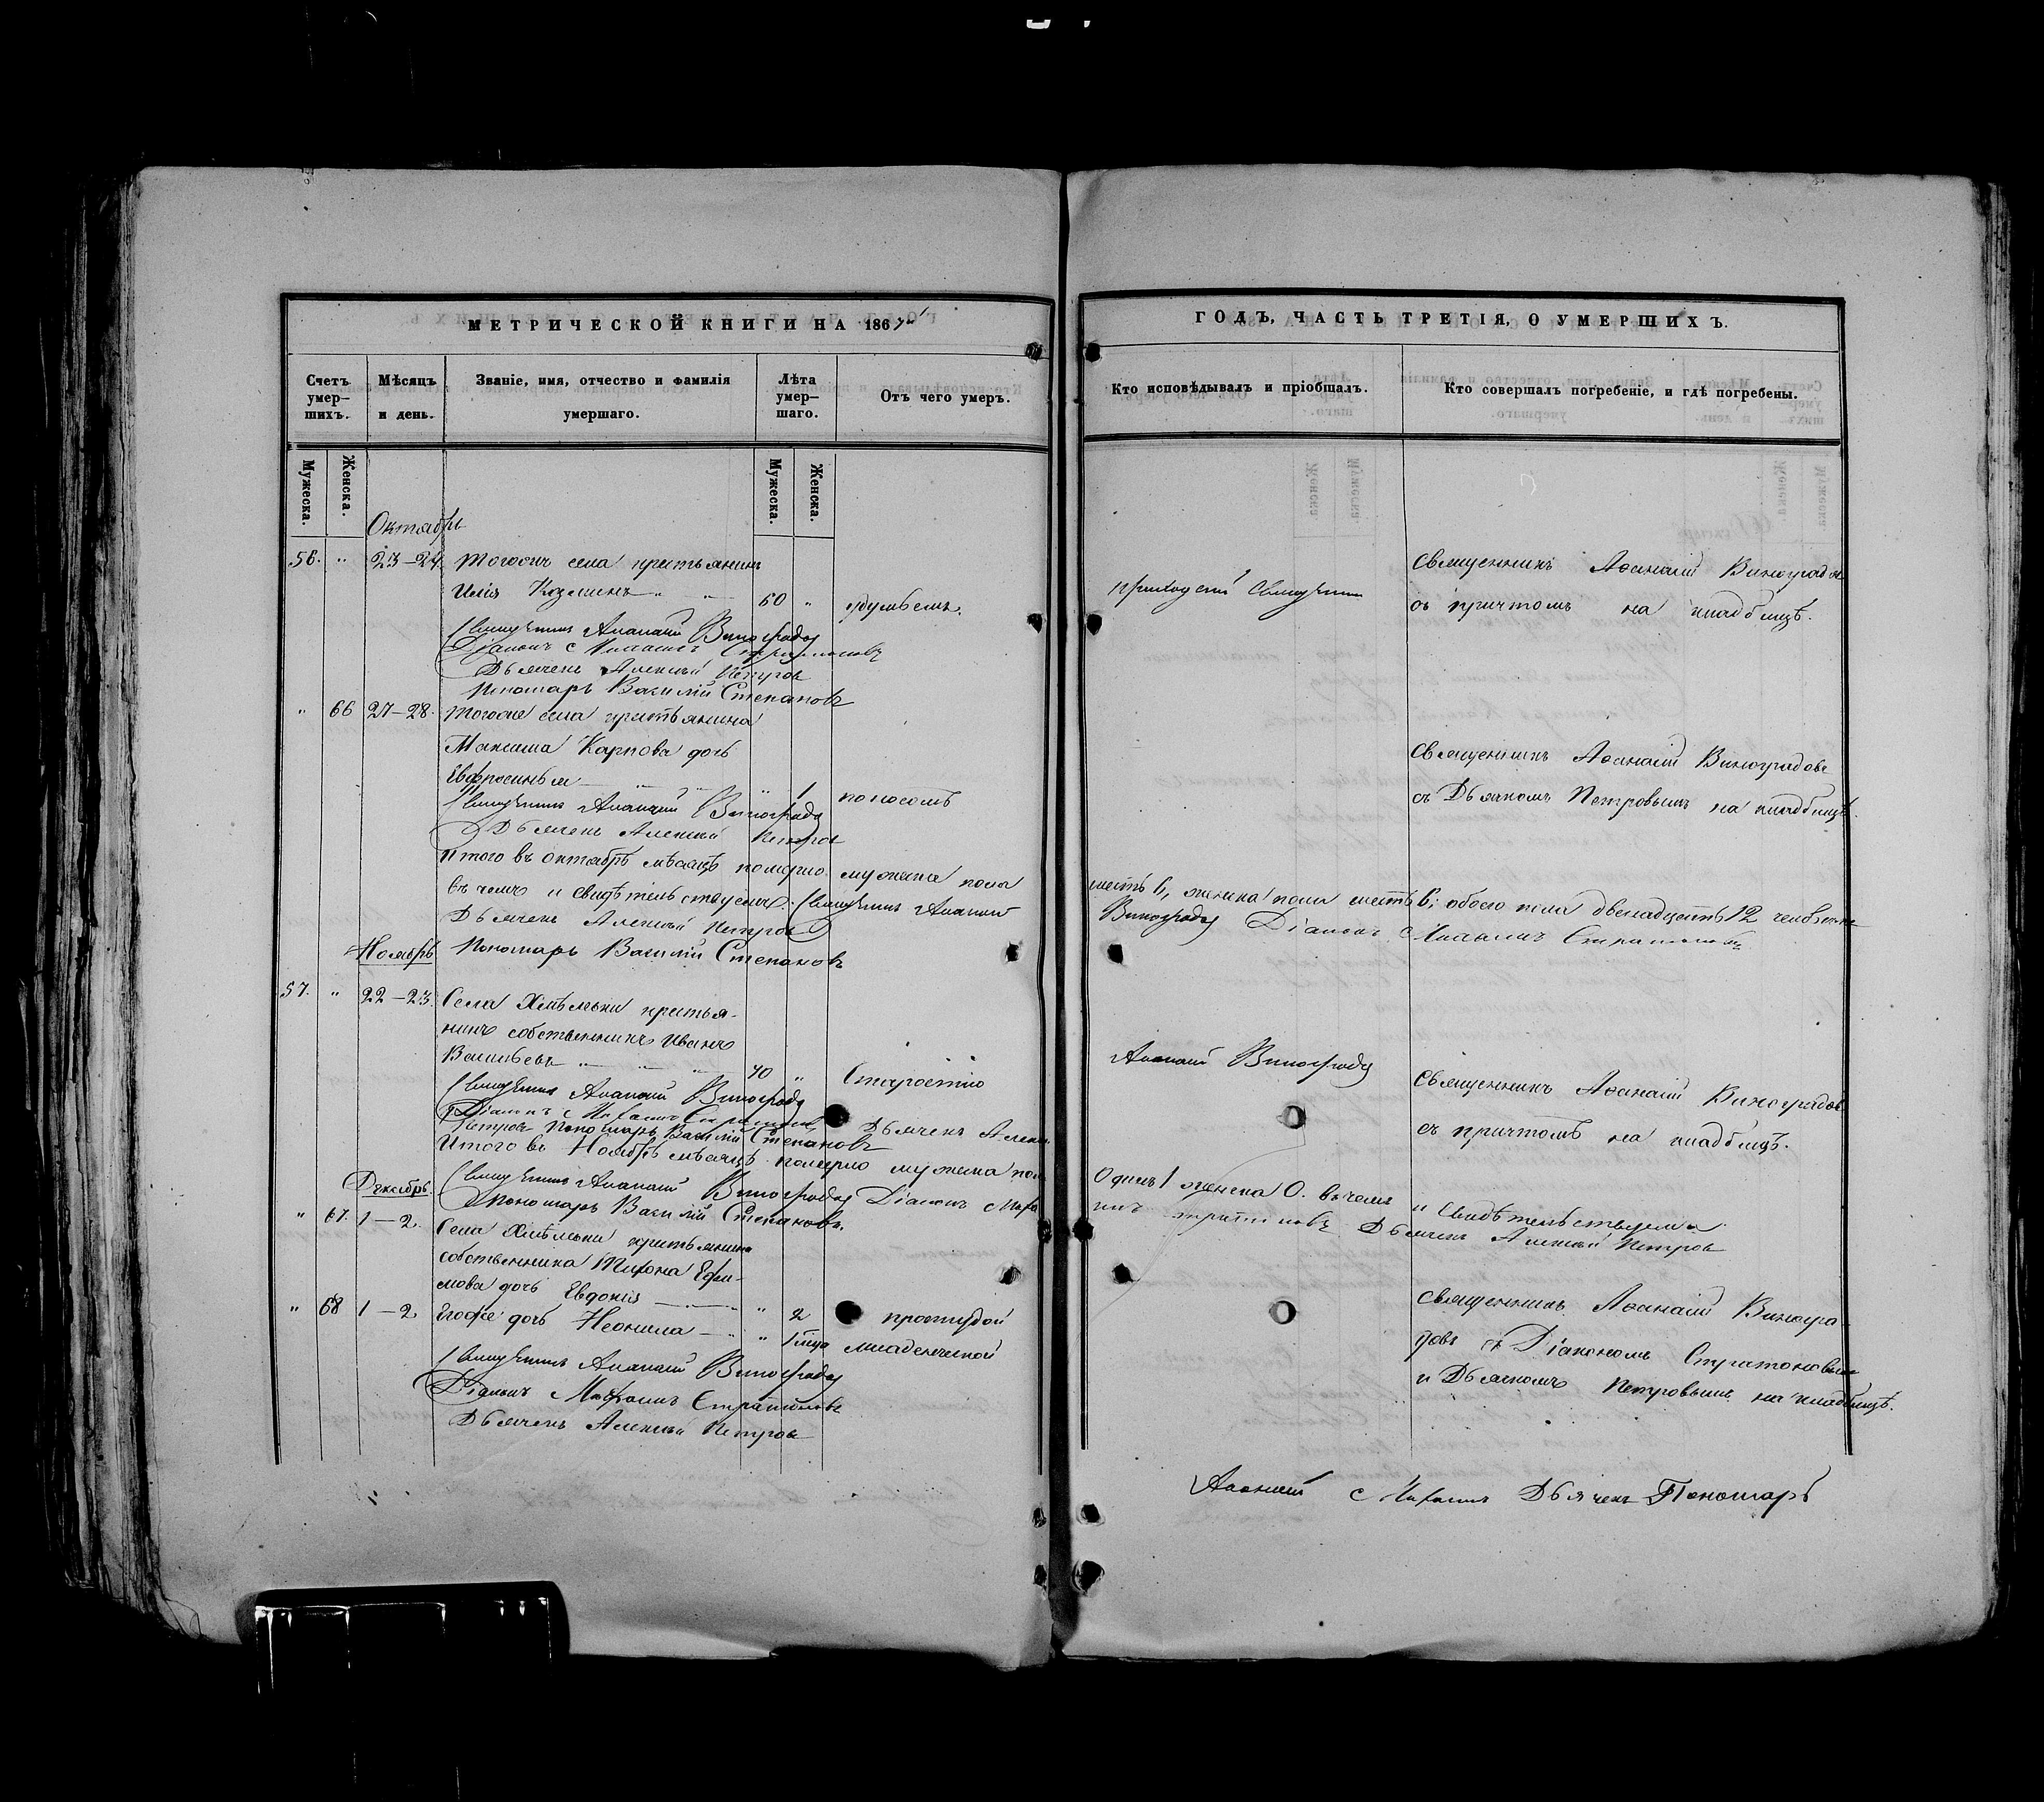 МЕТРИЧЕСКОЙ КНИГИ НА 1867й
Счетъ умер-шихъ.
Мѣсяцъ и день.
Званіе, имя, отчество и фамилія умершаго.
Лѣта умер-шаго.
Отъ чего умеръ.
Мужеска.
Женска.
Мужеска.
Женска.
Октябрь
56. " 23-24. Тогожъ села крестьянинъ
Илія Козминъ " " 60 "
Священникъ Аѳанасій Виноградовъ
Діаконъ Михаилъ Стратоновъ
Дьячекъ Алексѣй Петровъ
Пономарь Василій Степановъ
" 66 27-28. Тогоже села крестьянина
Максима Карпова дочь
Евфросинья " " " 1 поносомъ
Священникъ Аѳанасій Виноградовъ
Дьячекъ Алексѣй Петровъ
Итого въ октябрѣ мѣсяцѣ померло мужеска пола
въ чемъ и свидѣтельствуемъ: Священникъ Аѳанасій
Дьячекъ Алексѣй Петровъ
Пономарь Василій Степановъ
Ноябрь
57. " 22-23. Села Хмѣлевки крестья-
нинъ собственникъ Иванъ
Васильевъ " " " 70 " Старостію
Священникъ Аѳанасій Виноградовъ
Діаконъ Михаилъ Стратоновъ Дьячекъ Алексѣй
Петровъ Пономарь Василій Степановъ
Итого въ Ноябрѣ мѣсяцѣ померло мужеска пола
Священникъ Аѳанасій Виноградовъ Діаконъ Миха
Пономарь Василій Степановъ.
Декабрь.
" 67. 1-2. Села Хмѣлевки крестьянина
собственника Тихона Ефи-
мова дочь Евдокія " 2 простудой
" 68 1-2 Егоже дочь Неонила " " 1 младенческой
Священникъ Аѳанасій Виноградовъ
Діаконъ Михаилъ Стратоновъ
Дьячекъ Алексѣй Петровъ
ГОДЪ, ЧАСТЬ ТРЕТІЯ, О УМЕРШИХЪ.
Кто исповѣдывалъ и пріобщалъ.
Кто совершалъ погребеніе, и гдѣ погребены.
приходскій Священникъ
Священникъ Аѳанасій Виноградовъ
съ причтомъ на кладбищѣ.
Священникъ Аѳанасій Виноградовъ
съ Дьячкомъ Петровымъ на кладбищѣ.
шесть 6, женска пола шесть 6; обоего пола двенадцать 12 человѣкъ
Виноградовъ Діаконъ Михаилъ Стратоновъ
Аѳанасій Виноградовъ
Священникъ Аѳанасій Виноградовъ
съ причтомъ на кладбищѣ.
Одинъ 1 женска 0. въ чемъ и свидѣтельствуемъ
илъ Стратоновъ Дьячекъ Алексѣй Петровъ
Священникъ Аѳанасій Виногра-
довъ съ Діакономъ Стратоновымъ
и Дьячкомъ Петровымъ на кладбищѣ.
Аѳанасій Михаилъ Дьячекъ Пономарь